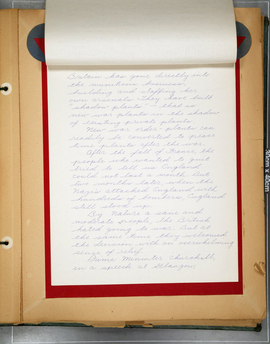 Britain has gone directly into
the munitions business,
building and staffing her
own arsenals. They have built
"shadow plants" — that is
new war plants in the shadow
of existing private plants.
New war order plants can
readily be converted to peace
time plants after the war.
After the fall of France, the
people who wanted to quit
tried to tell us England
could not last a month. But
two months later when the
Nazis attacked England with
hundreds of bombers, England
still stood up.
By Nature a sane and
moderate people, the British
hated going to war. But at
the same time they welcomed
the decision with an overwhelming
sense of relief.
Prime Minister Churchill
in a speech at
30cm x 45cm